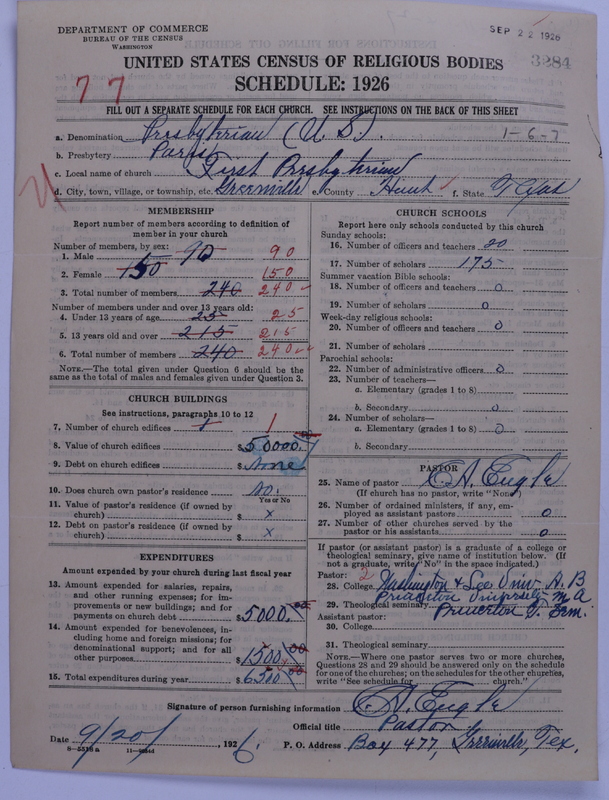 DEPARTMENT OF COMMERCE
BUREAU OF THE CENSUS
WASHINGTON
SEP 22 1926
3284
UNITED STATES CENSUS OF RELIGIOUS BODIES
SCHEDULE: 1926
77
FILL OUT A SEPARATE SCHEDULE FOR EACH CHURCH. SEE INSTRUCTIONS ON THE BACK OF THIS SHEET
a. Denomination Presbyterian (U.S.). 1-6-7
b. Presbytery Paris
c. Local name of church First Presbyterian
d. City, town, village, or township, etc. Greenville e. County Hunt f. State Texas
MEMBERSHIP
Report number of members according to definition of member in your church
Number of members, by sex:
1. Male 90 90
2. Female 150 150
3. Total number of members 240 240
Number of members under and over 13 years old:
4. Under 13 years of age 25 25
5. 13 years old and over 215 215
6. Total number of members 240 240
NOTE.—The total given under Question 6 should be
same as the total of males and females given under Question 3.
CHURCH BUILDINGS
See instructions, paragraphs 10 to 12
7. Number of church edifices 1 1
8. Value of church edifices $50000.
9. Debt on church edifices $None
10. Does church own pastor's residence No.
Yes or No
11. Value of pastor's residence (if owned by
church) $ x
12. Debt on pastor's residence (if owned by
church) $ x
EXPENDITURES
Amount expended by your church during last fiscal year
13. Amount expended for salaries, repairs,
and other running expenses; for im-
provements or new buildings; and for
payments on church debt $5000.00
14. Amount expended for benevolences, in-
cluding home and foreign missions; for
denominational support; and for all
other purposes $1500.00
15. Total expenditures during year $6500.00
CHURCH SCHOOLS
Report here only schools conducted by this church
Sunday schools:
16. Number of officers and teachers 20
17. Number of scholars 175
Summer vacation Bible schools:
18. Number of officers and teachers 0
19. Number of scholars 0
Week-day religious schools:
20. Number of officers and teachers 0
21. Number of scholars
Parochial schools:
22. Number of administrative officers 0
23. Number of teachers—
a. Elementary (grades 1 to 8)
b. Secondary 0
24. Number of scholars—
a. Elementary (grades 1 to 8) 0
b. Secondary
PASTOR
25. Name of pastor
(If church has no pastor, write "None")
26. Number of ordained ministers, if any, em-
ployed as assistant pastors 0
27. Number of other churches served by the
pastor or his assistants 0
If pastor (or assistant pastor) is a graduate of a college or
theological seminary, give name of institution below. (If
not a graduate, write "No" in the space indicated.)
Pastor: 2
28. College Washington & Lee Univ. A.B
Princeton University M A
29. Theological seminary Princeton
Assistant pastor:
30. College
31. Theological seminary
NOTE.—Where one pastor serves two or more churches,
Questions 28 and 29 should be answered only on the schedule
for one of the churches; on the schedules for the other churches,
write "See schedule for church."
Signature of person furnishing information
Official title Pastor
Date 9/20/, 1926. P. O. Address Box 477, Greenville, Tex.